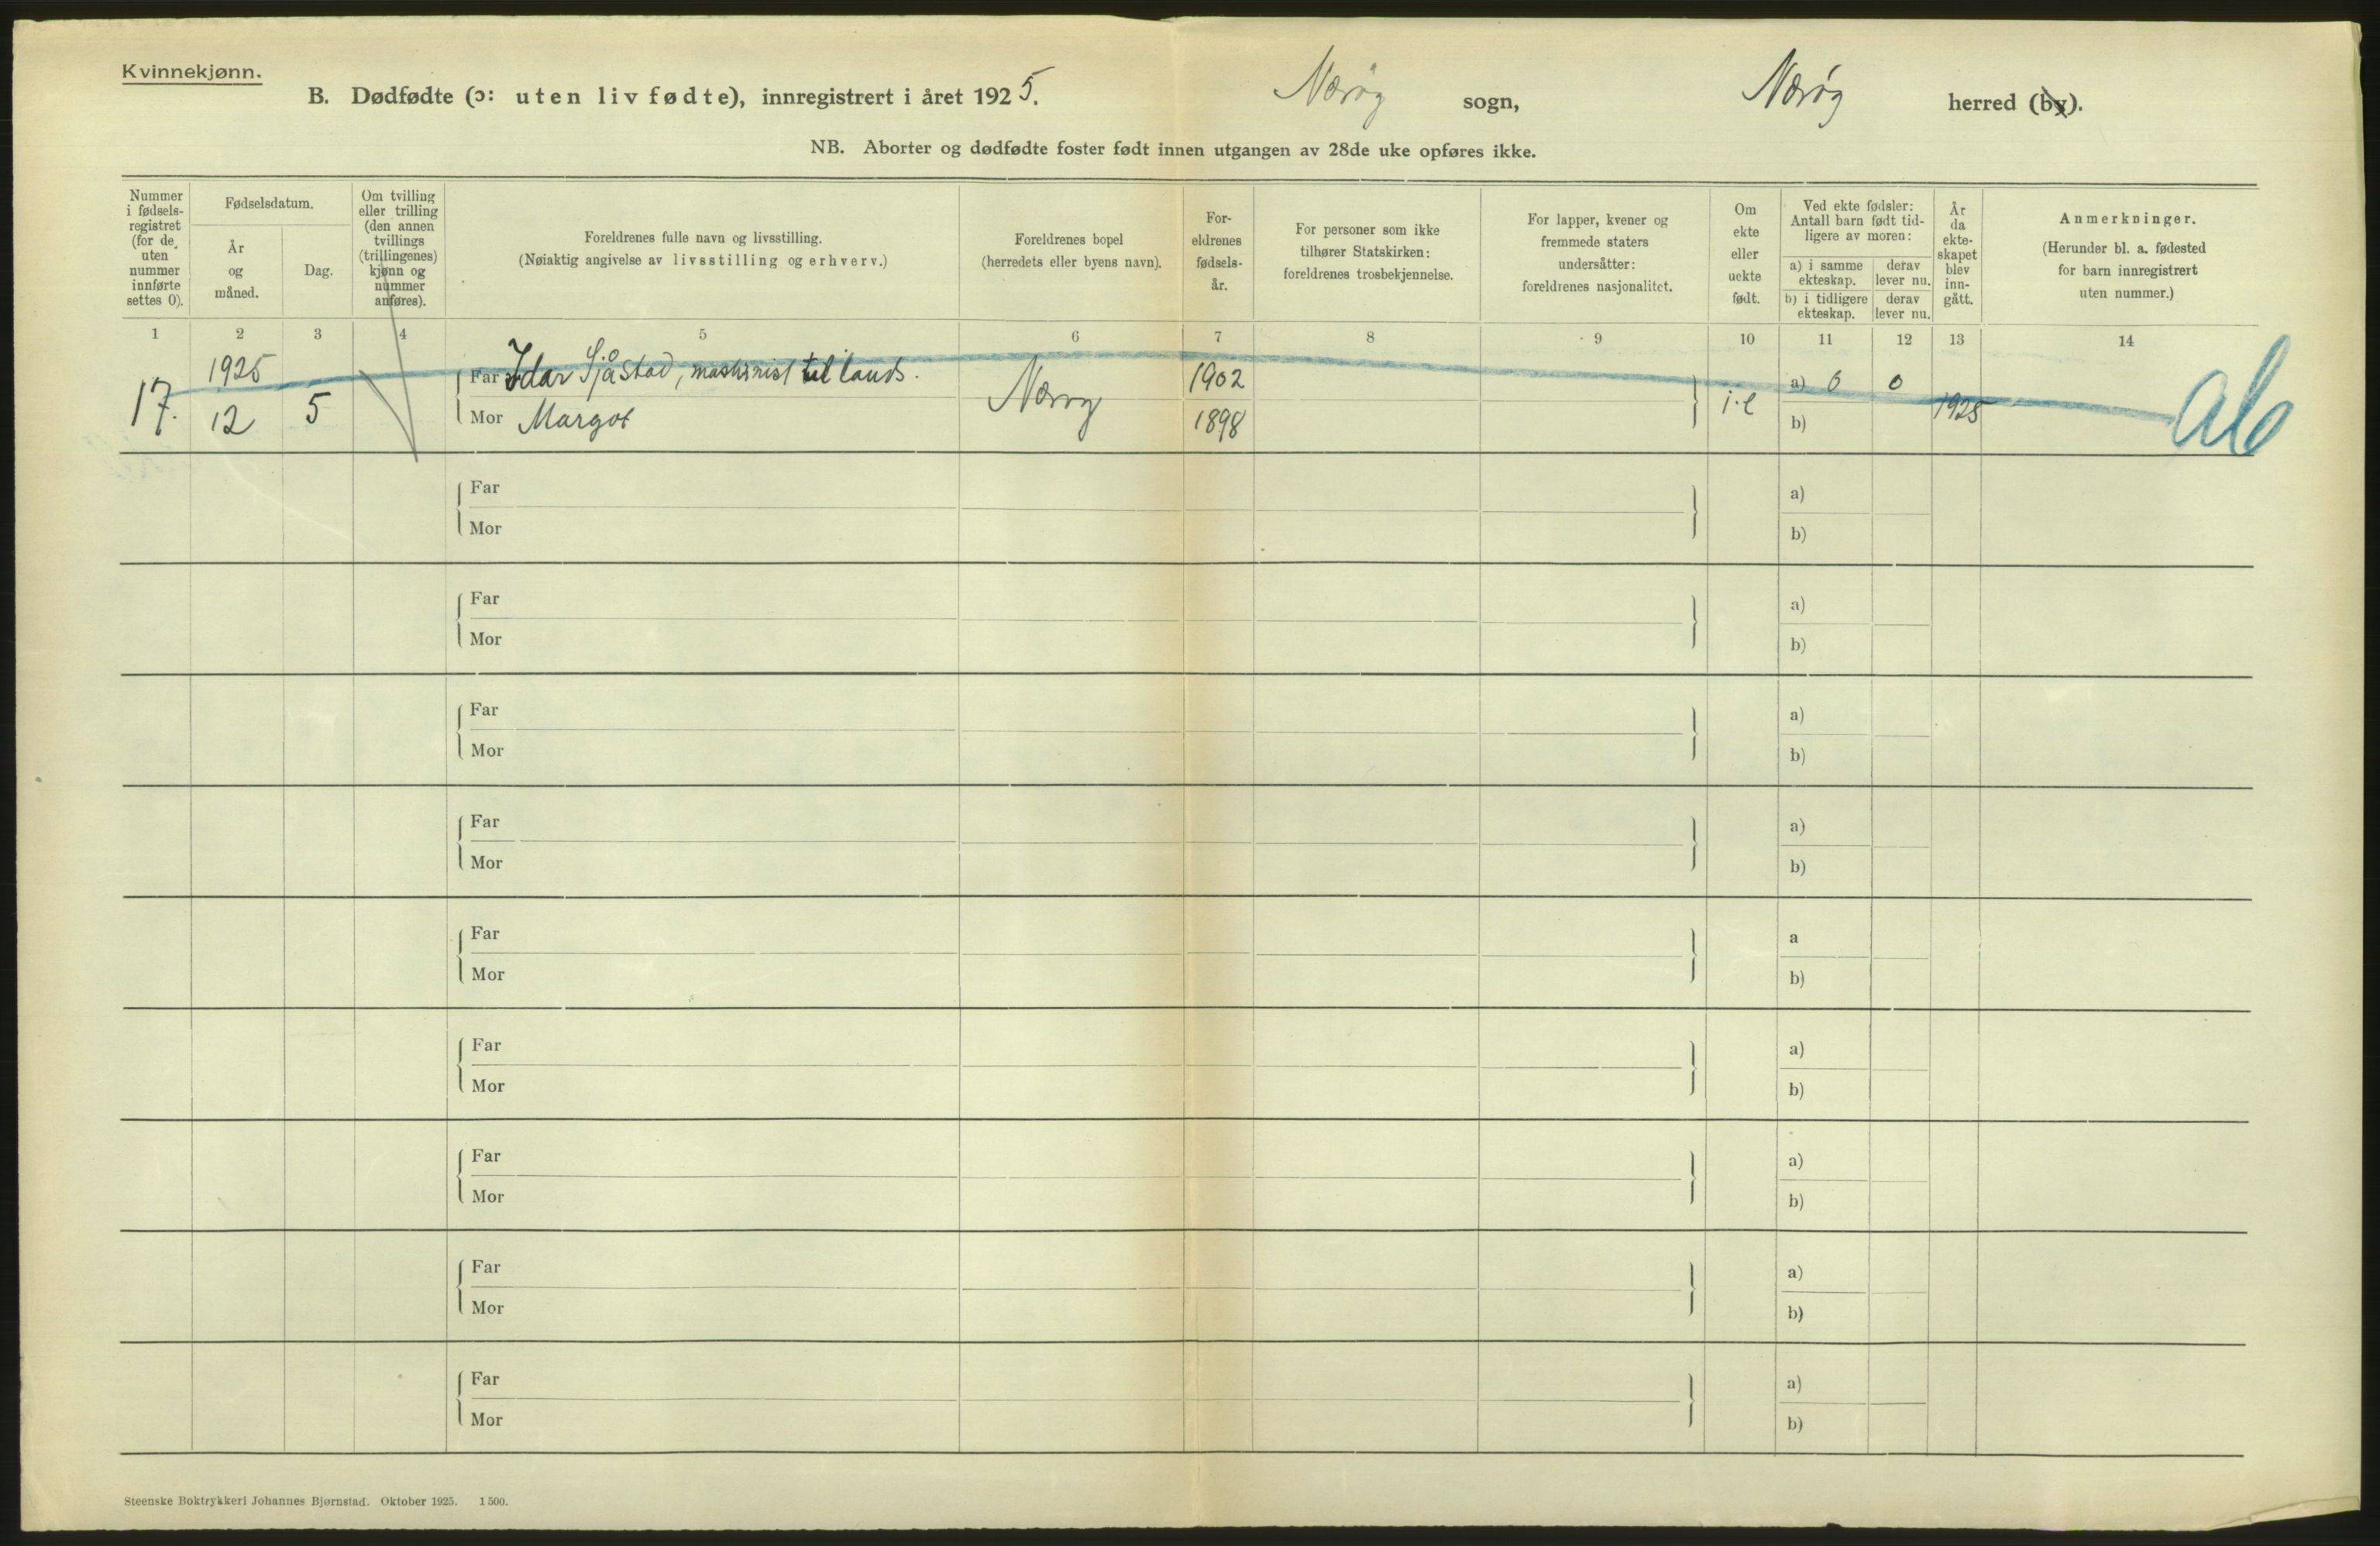 Kvinnekjønn.
B. Dødfødte (ɔ: uten liv fødte), innregistrert i året 1925. Nærøy sogn, Nærøy herred (by).
NB. Aborter og dødfødte foster født innen utgangen av 28de uke opføres ikke.
Nummer i fødsels-registret (for de uten nummer innførte settes 0).
Fødselsdatum.
År og måned.
Dag.
Om tvilling eller trilling (den annen tvillings (trillingenes) kjønn og nummer anføres).
Foreldrenes fulle navn og livsstilling.
(Nøiaktig angivelse av livsstilling og erhverv.)
Foreldrenes bopel
(herredets eller byens navn).
For-eldrenes fødsels-år.
For personer som ikke tilhører Statskirken: foreldrenes trosbekjennelse.
For lapper, kvener og fremmede staters undersåtter: foreldrenes nasjonalitet.
Om ekte eller uekte født.
Ved ekte fødsler: Antall barn født tid-ligere av moren:
a) i samme ekteskap. derav lever nu.
b) i tidligere ekteskap. derav lever nu.
År da ekte-skapet blev inn-gått.
Anmerkninger.
(Herunder bl. a. fødested for barn innregistrert uten nummer.)
1 2 3 4 5 6 7 8 9 10 11 12 13 14
17. 1925 12 5
Far Idar Sjåstad, maskinist til lands. Nærøy 1902 i.e a) 0 0 1925
Mor Margot 1898 b)
Far a)
Mor b)
Far a)
Mor b)
Far a)
Mor b)
Far a)
Mor b)
Far a
Mor b)
Far a)
Mor b)
Far a)
Mor b)
Far a)
Mor b)
Far a)
Mor b)
Steenske Boktrykkeri Johannes Bjørnstad. Oktober 1925. 1500.